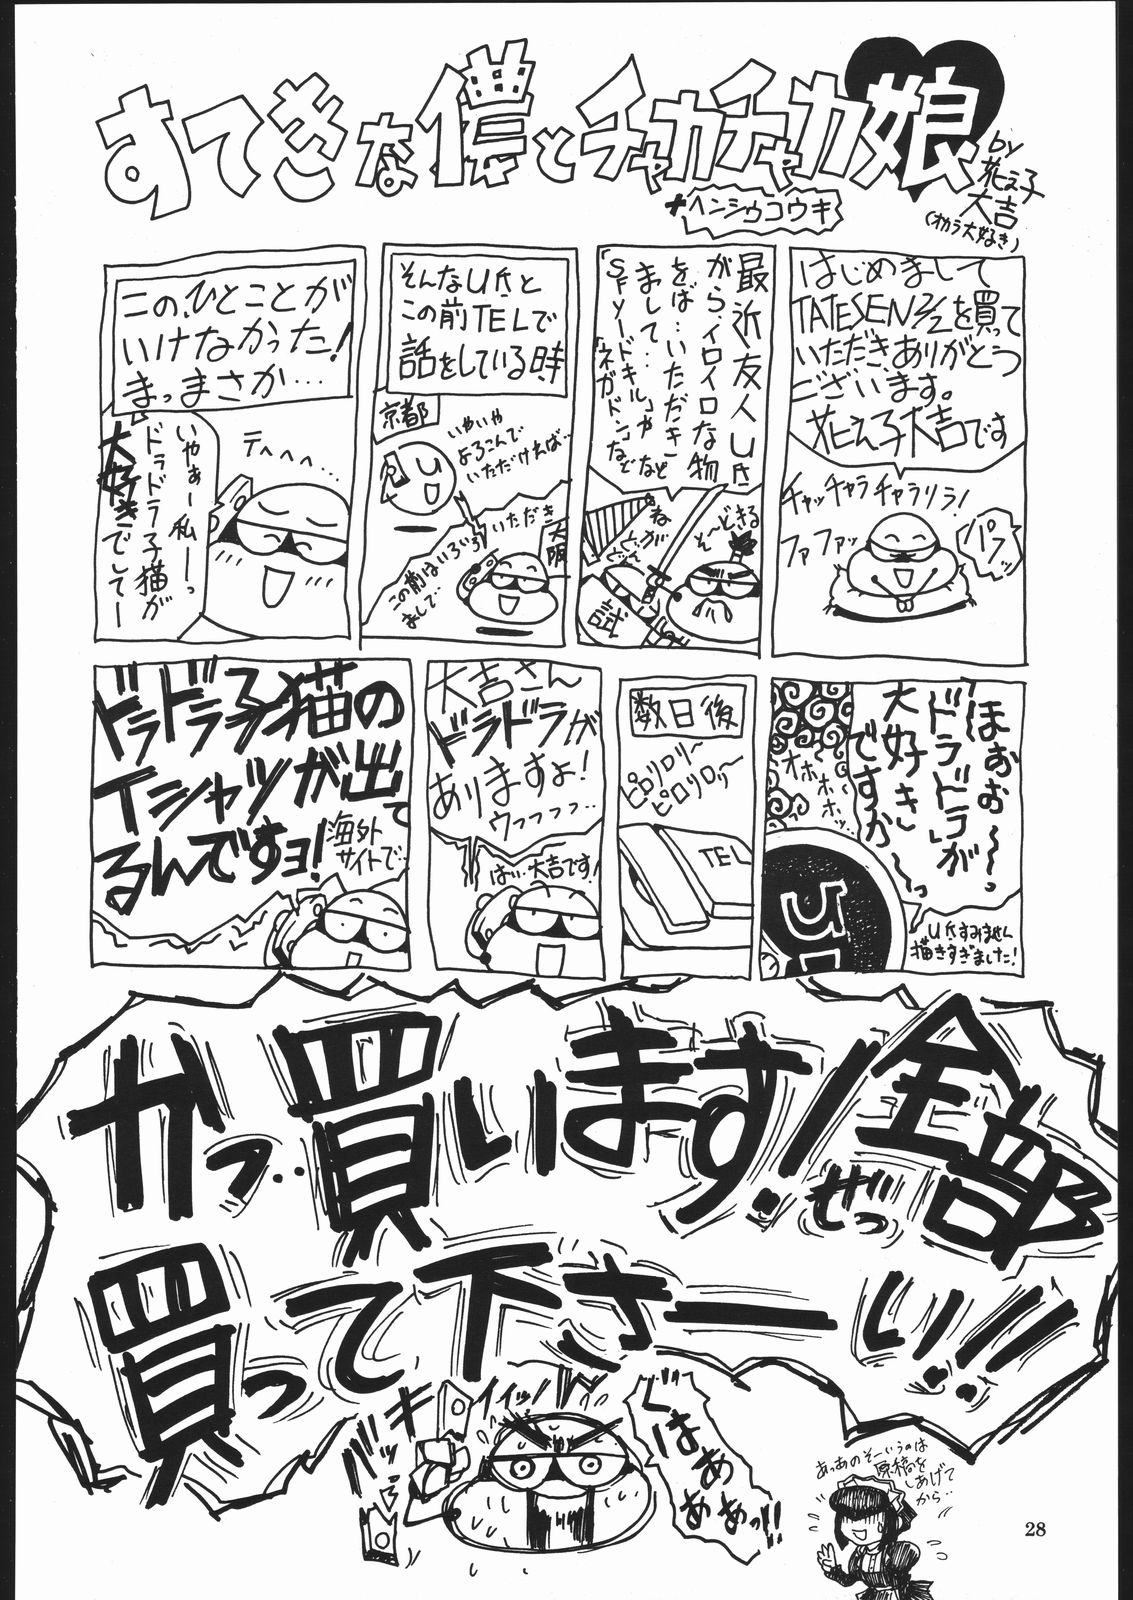 すてきな儂とチャカチャカ娘
+ヘンシュウコウキ
by
花え子
大吉
(オカラ大好き)
はじめまして
TATESEN2/2を買って
いただきありがとう
ございます。
花え子大吉です
チャッチャラチャラリラ!
ファファッ
パフッ
最近友人U氏
からイロイロな物
をば…いただき
まして…
「SFソードキル」や
「ネガドン」など
など
そ〜どきる
ねがどん
試
そんなU氏と
この前TELで
話をしている時、
京都
U
いやいや
よろこんで
いただければ…
大阪
この前はいろいろいただき
まして…
この、ひとことが
いけなかった!
まっまさか…
テへへへ…
いやぁー私ーっ
ドラドラ子猫が
大好きでしてー
ほぉぉ〜〜っ
「ドラドラ」が
大好き
ですか〜っ
オホホホホッ…
U氏すみません
描きすぎました!
数日後
ピロリロリ〜
ピロリロリィ〜
TEL
大吉さん
ドラドラが
ありますよ!
ウっっっっ…
はい…大吉です!
ドラドラ子猫の
Tシャツが出て
るんですョ!
海外
サイトで…
かっ…買います!全部
ぜっ
買って下さーい!!
イイッ!
バキバキッ
ぐはぁぁぁぁっ!!
あっあのそーいうのは
原稿を
しあげて
から…
28